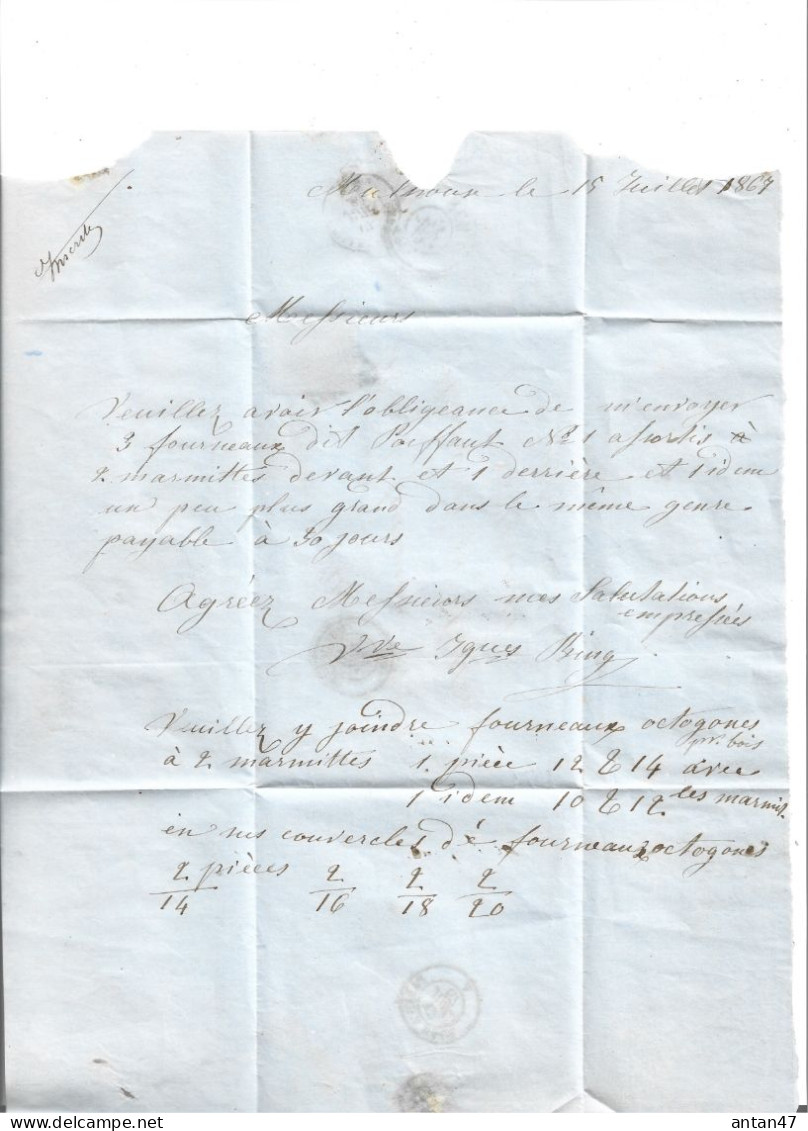 Mulhouse le 15 Juillet 1867
Inscrite
Messieurs
Veuillez avoir l'obligeance de m'envoyer
3 fourneaux dit No 1 assortis à
2 marmittes devant et 1 derrière et 1 idem
un peu plus grand dans le même genre
payable à 30 jours
Agréez Messieurs mes Salutations
empressées
Vve Bing
Veuillez y joindre fourneaux octogones
pr. bois
à 2 marmittes 1 pièce 12 & 14 avec
1 idem 10 & 12 les marmit.
en sus couvercles de fourneaux octogones
2 pièces 2 2 2
14 16 18 20
antan47